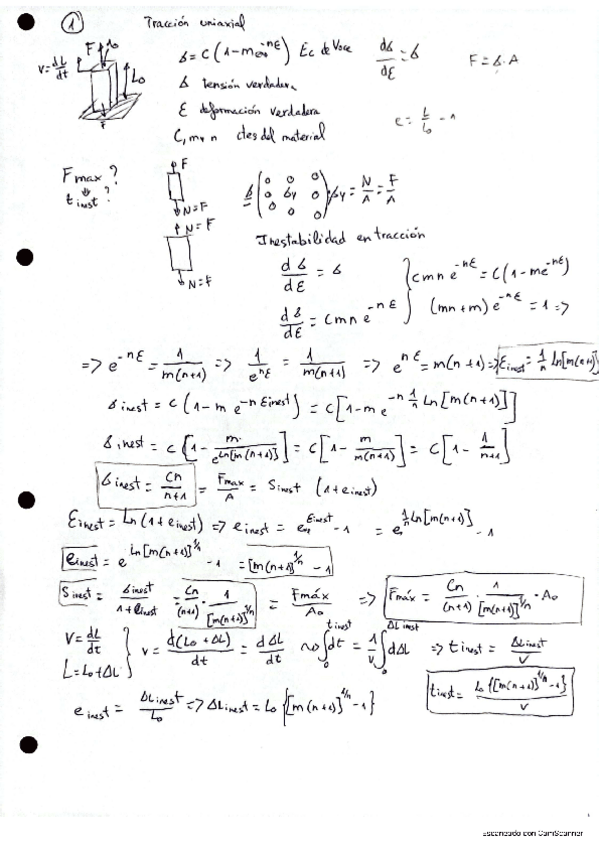 ① Tracción uniaxial
V = dL/dt F A₀ L₀ F
σ = C(1 - m e^(-nε)) Ec de Voce dσ/dε = σ F = σ·A
σ tensión verdadera
ε deformación verdadera e = L/L₀ - 1
C, m y n ctes del material
Fmax?
t inest?
F N=F N=F N=F
σ = (0 0 0; 0 σy 0; 0 0 0) σy = N/A = F/A
Inestabilidad en tracción
dσ/dε = σ
dσ/dε = Cmn e^(-nε)
Cmn e^(-nε) = C(1 - m e^(-nε))
(mn + m) e^(-nε) = 1 =>
=> e^(-nε) = 1/(m(n+1)) => 1/e^(nε) = 1/(m(n+1)) => e^(nε) = m(n+1) => ε inest = 1/n Ln[m(n+1)]
σ inest = C(1 - m e^(-n ε inest)) = C[1 - m e^(-n 1/n Ln[m(n+1)])]
σ inest = C[1 - m/e^(Ln[m(n+1)])] = C[1 - m/(m(n+1))] = C[1 - 1/(n+1)]
σ inest = Cn/(n+1) = Fmax/A = S inest (1 + e inest)
ε inest = Ln(1 + e inest) => e inest = e^(ε inest) - 1 = e^(1/n Ln[m(n+1)]) - 1
e inest = e^(Ln[m(n+1)]^(1/n)) - 1 = [m(n+1)]^(1/n) - 1
S inest = σ inest/(1 + e inest) = Cn/(n+1) · 1/[m(n+1)]^(1/n) = Fmáx/A₀ => Fmáx = Cn/(n+1) · 1/[m(n+1)]^(1/n) · A₀
V = dL/dt
L = L₀ + ΔL
V = d(L₀ + ΔL)/dt = dΔL/dt ∫₀^(t inest) dt = 1/V ∫₀^(ΔL inest) dΔL => t inest = ΔL inest/V
e inest = ΔL inest/L₀ => ΔL inest = L₀{[m(n+1)]^(1/n) - 1}
t inest = L₀{[m(n+1)]^(1/n) - 1}/V
Escaneado con CamScanner